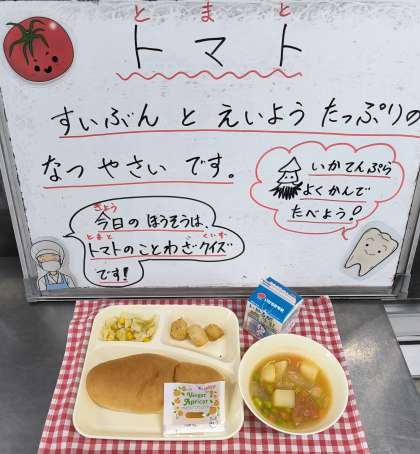 とまと
トマト
すいぶん と えいよう たっぷりの
なつ やさい です。
いかてんぷら
よくかんで
たべよう!
きょう
今日の ほうそうは、
とまと くいず
トマトのことわざクイズ
です!
Apricot